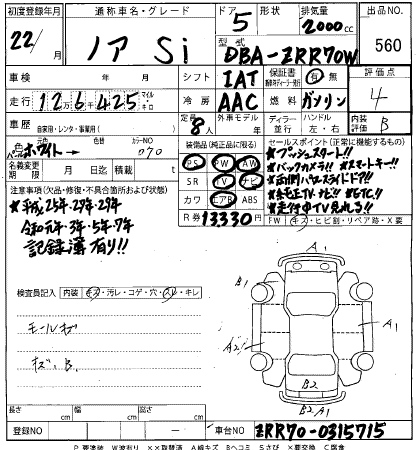 初度登録年月 通称車名・グレード ドア 形状 排気量 出品NO.
22/ 月 ノア Si 5 2000cc 560
型式 DBA-ZRR70W
車検 年 月 シフト IAT 保証書 有・無 評価点
走行 12万6千425 マイル キロ 冷房 AAC 燃料 ガソリン 4
車歴 自家用・レンタ・事業用( ) 定員 8人 ディーラー 並行 ハンドル 左・右 内装評価 B
色 パールホワイト カラーNO 070 装備品(純正品に限る) セールスポイント(正常に機能するもの)
名義変更期限 月 日迄 積載 t PS PW AW ★プッシュスタート!!
注意事項(欠品・修復・不具合箇所および状態) SR TV ナビ ★バックカメラ!! ★スマートキー!!
★平成25年.27年.29年 カワ エアB ABS ★両側パワースライドドア!!
令和元年.3年.5年.7年 R券 13330円 ★純正TV.ナビ!! ★ETC!!
記録簿有り!! ★走行中TV見れる!!
FW キズ・ヒビ割・リペア跡・X要
検査員記入 内装 キズ・汚レ・コゲ・穴・スレ・キレ
A1
B1
モールキズ
A1
A2
キズ.B.
B2
B2 A1
長さ cm 幅 cm 高さ cm
登録NO ― 車台NO ZRR70-0315715
P 要塗装 W波有り XX取替済 A線キズ Bヘコミ Sさび X要交換 C腐食